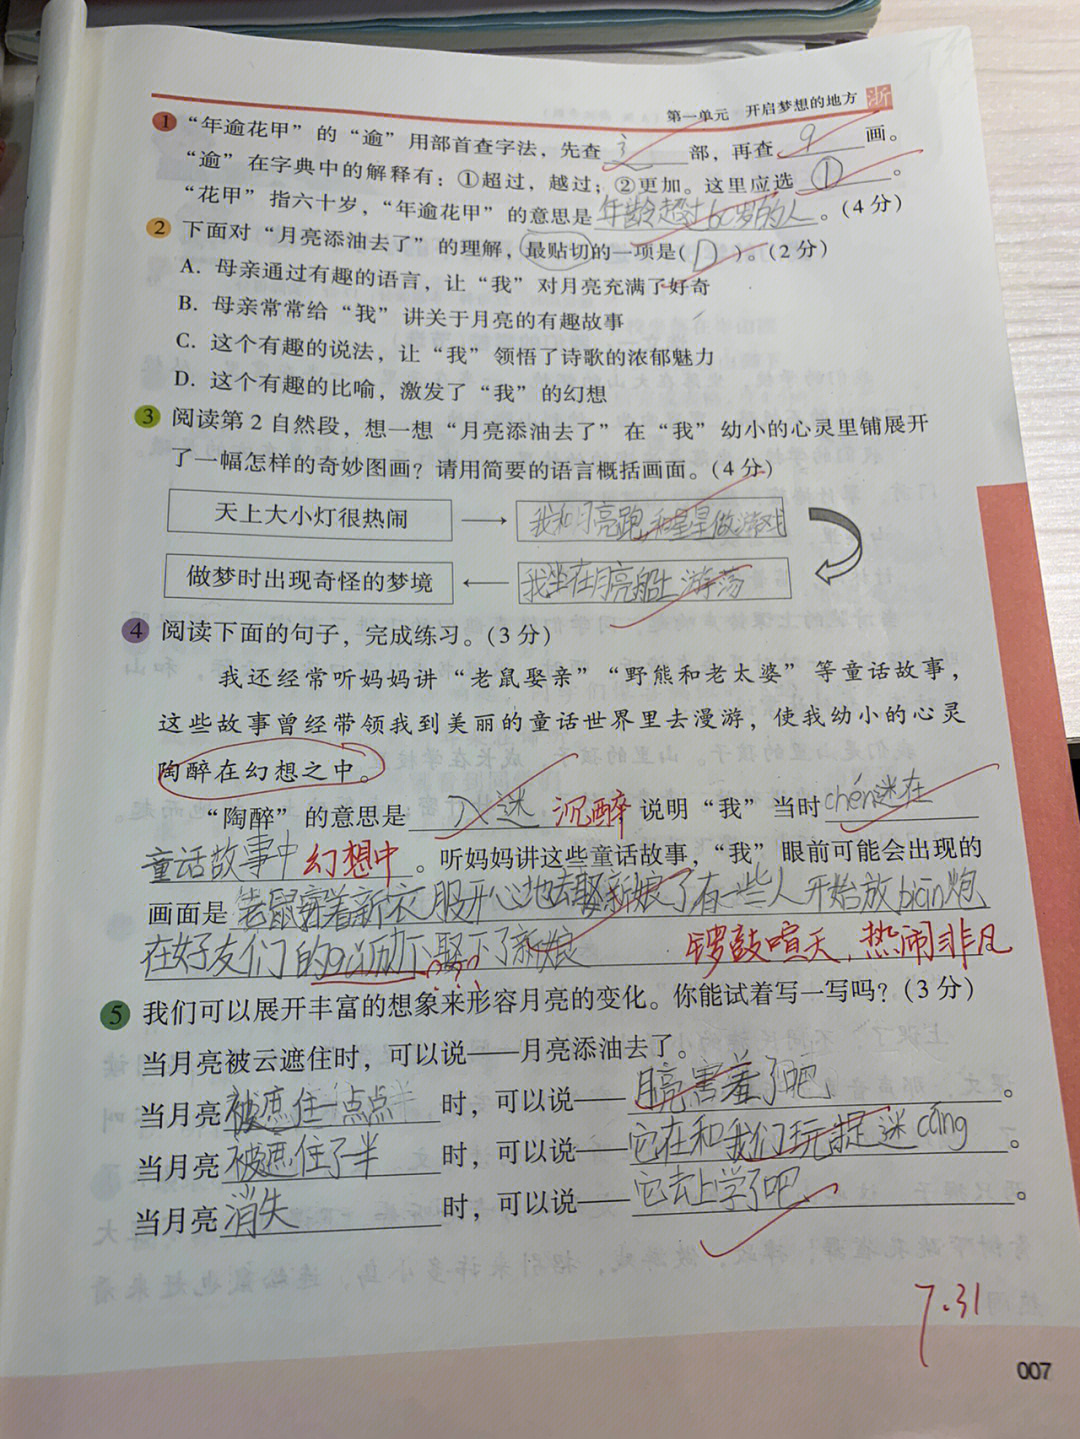 第一单元 开启梦想的地方 浙
1 “年逾花甲”的“逾”用部首查字法，先查 辶 部，再查 9 画。
“逾”在字典中的解释有：①超过，越过；②更加。这里应选 ① 。
“花甲”指六十岁，“年逾花甲”的意思是 年龄超过60岁的人 。（4分）
2 下面对“月亮添油去了”的理解，最贴切的一项是( D )。（2分）
A. 母亲通过有趣的语言，让“我”对月亮充满了好奇
B. 母亲常常给“我”讲关于月亮的有趣故事
C. 这个有趣的说法，让“我”领悟了诗歌的浓郁魅力
D. 这个有趣的比喻，激发了“我”的幻想
3 阅读第2自然段，想一想“月亮添油去了”在“我”幼小的心灵里铺展开
了一幅怎样的奇妙图画？请用简要的语言概括画面。（4分）
天上大小灯很热闹 → 我和月亮跑，和星星做游戏
做梦时出现奇怪的梦境 ← 我坐在月亮船上游荡
4 阅读下面的句子，完成练习。（3分）
我还经常听妈妈讲“老鼠娶亲”“野熊和老太婆”等童话故事，
这些故事曾经带领我到美丽的童话世界里去漫游，使我幼小的心灵
陶醉在幻想之中。
“陶醉”的意思是 入迷 沉醉 说明“我”当时 chén迷在
童话故事中 幻想中 。听妈妈讲这些童话故事，“我”眼前可能会出现的
画面是 老鼠穿着新衣服开心地去娶新娘了有一些人开始放biān炮
在好友们的 下娶下了新娘 锣鼓喧天，热闹非凡
5 我们可以展开丰富的想象来形容月亮的变化。你能试着写一写吗？（3分）
当月亮被云遮住时，可以说——月亮添油去了。
当月亮 被遮住一点点 时，可以说—— 月亮害羞了吧 。
当月亮 被遮住了半 时，可以说—— 它在和我们玩捉迷cáng 。
当月亮 消失 时，可以说—— 它去上学了吧 。
7.31
007